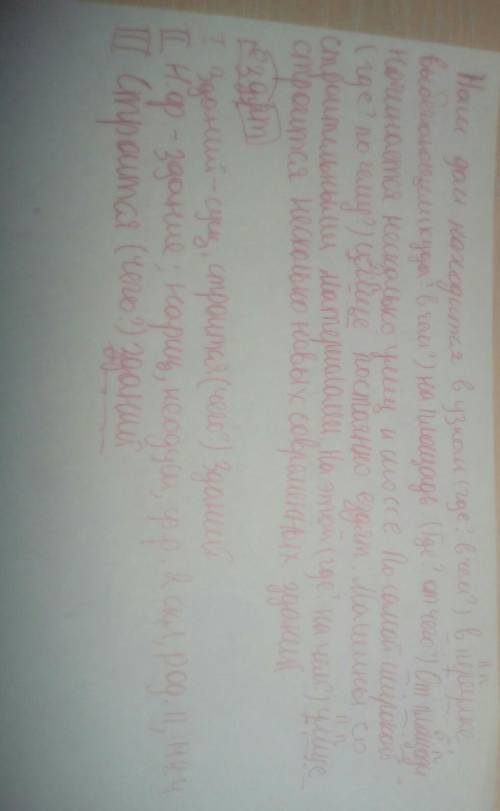 Наш дом находится в узком (где? в чем?) в переулке
выходящем (куда? в чем?) на площадь (где? от чего?) От площади
начинается несколько улиц и шоссе По самой широкой
(где? по чему?) улице постоянно ездят. Машины со
строительными материалами На этой (где? на чем?) улице
строится несколько новых современных зданий
Ездят
I Зданий - сущ, строится (чего?) зданий
II Н.ф - здание; нариц, неодуш, ср.р 2 скл, род. п, мн.ч
III Строится (чего?) зданий